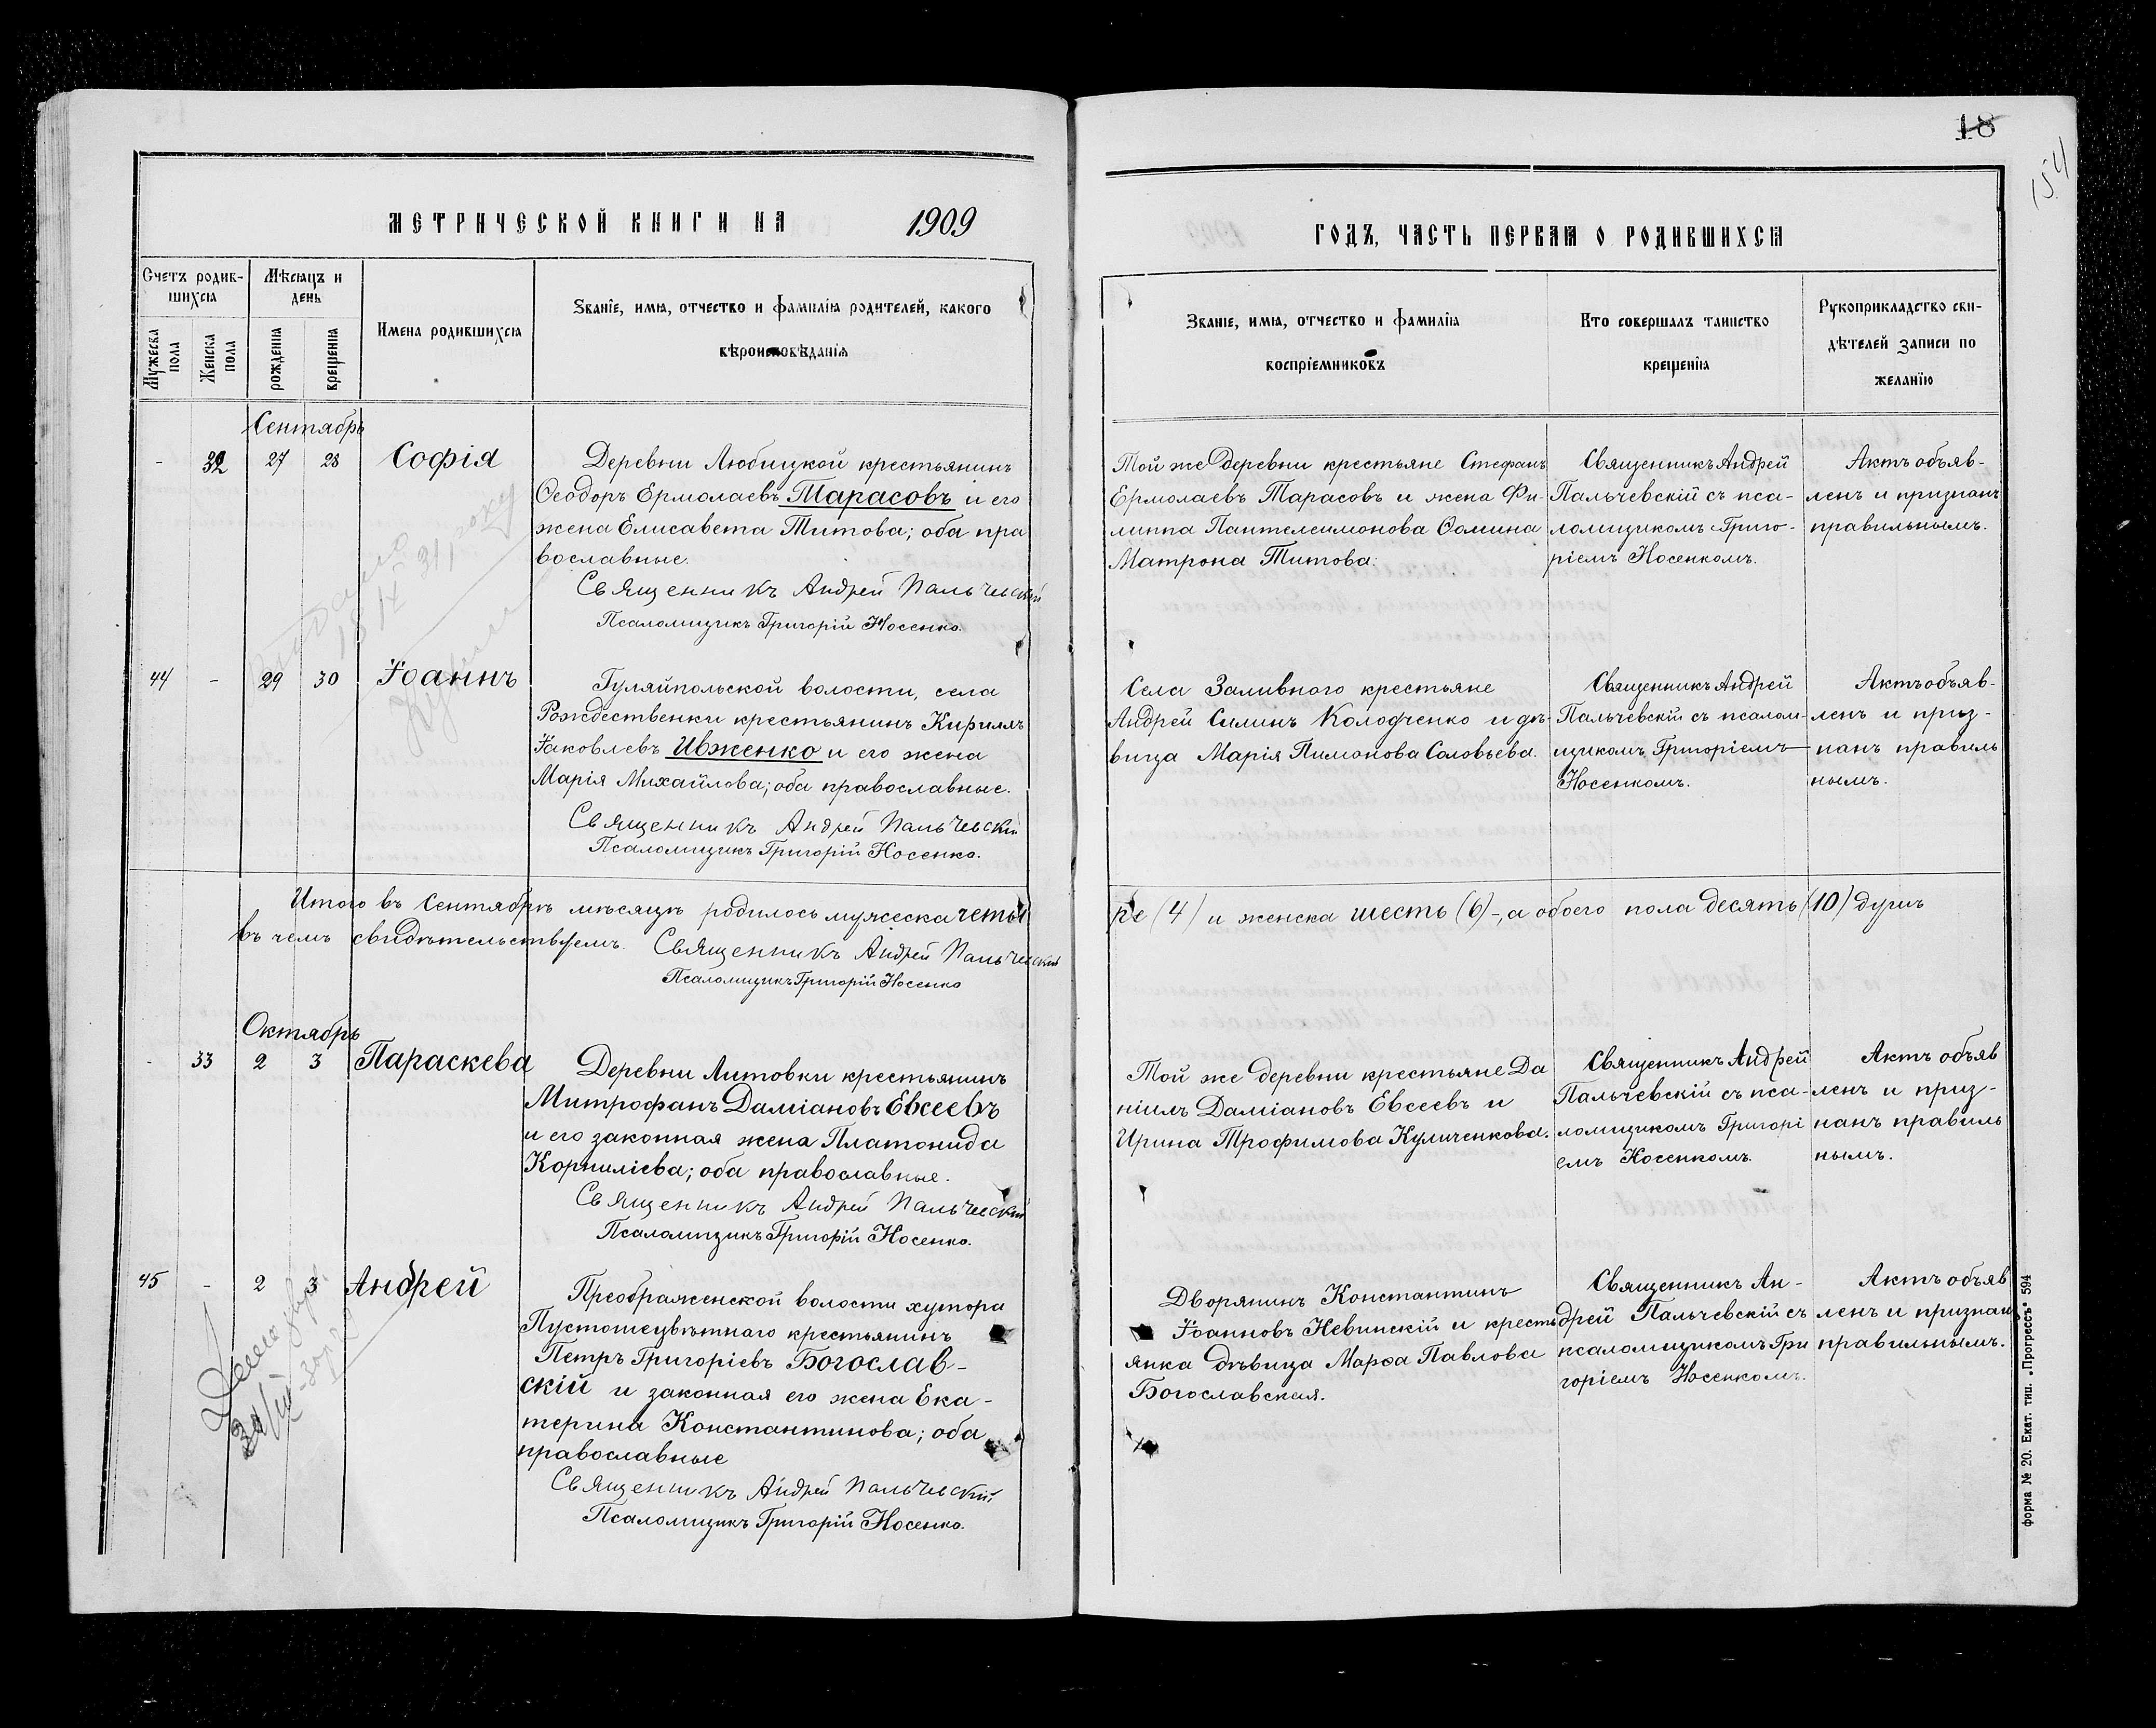 18
154
МЕТРИЧЕСКОЙ КНИГИ НА 1909
ГОДЪ, ЧАСТЬ ПЕРВАЯ О РОДИВШИХСЯ
Счетъ родив-
шихся
Мужеска
пола
Женска
пола
Мѣсяцъ и
день
рожденія
крещенія
Имена родившихся
Званіе, имя, отчество и фамилія родителей, какого
вѣроисповѣданія
Званіе, имя, отчество и фамилія
воспріемниковъ
Кто совершалъ таинство
крещенія
Рукоприкладство сви-
дѣтелей записи по
желанію
Сентябрь
- 32 27 28 Софія
Деревни Любицкой крестьянинъ
Ѳеодоръ Ермолаевъ Тарасовъ и его
жена Елисавета Титова; оба пра
вославные.
Священникъ Андрей Пальчевскій
Псаломщикъ Григорій Носенко.
Той же деревни крестьяне Стефанъ
Ермолаевъ Тарасовъ и жена Фи-
липпа Пантелеимонова Ѳомина
Матрона Титова.
Священникъ Андрей
Пальчевскій съ пса-
ломщикомъ Григо-
ріемъ Носенкомъ.
Актъ объяв-
ленъ и признанъ
правильнымъ.
31, року
44 - 29 30 Іоаннъ
Гуляйпольской волости, села
Рождественки крестьянинъ Кириллъ
Іаковлевъ Ивженко и его жена
Марія Михайлова; оба православные.
Священникъ Андрей Пальчевскій
Псаломщикъ Григорій Носенко.
Села Заливного крестьяне
Андрей Силинъ Колодченко и дѣ-
вица Марія Пимонова Соловьева.
Священникъ Андрей
Пальчевскій съ псалом-
щикомъ Григоріемъ
Носенкомъ.
Актъ объяв-
ленъ и приз-
нанъ правиль
нымъ.
Итого въ Сентябрѣ мѣсяцѣ родилось мужеска четы
ре (4) и женска шесть (6)-, а обоего пола десять (10) душъ
въ чемъ свидѣтельствуемъ. Священникъ Андрей Пальчевскій
Псаломщикъ Григорій Носенко
Октябрь
- 33 2 3 Параскева
Деревни Литовки крестьянинъ
Митрофанъ Даміановъ Евсеевъ
и его законная жена Платонида
Корниліева; оба православные.
Священникъ Андрей Пальчевскій
Псаломщикъ Григорій Носенко.
Той же деревни крестьяне Да
ніилъ Даміановъ Евсеевъ и
Ирина Трофимова Куличенкова.
Священникъ Андрей
Пальчевскій съ пса-
ломщикомъ Григорі
емъ Носенкомъ.
Актъ объяв
ленъ и приз-
нанъ правиль
нымъ.
45 - 2 3 Андрей
Преображенской волости хутора
Пустоцвѣтнаго крестьянинъ
Петръ Григоріевъ Богослав-
скій и законная его жена Ека-
терина Константинова; оба
православные
Священникъ Андрей Пальчевскій.
Псаломщикъ Григорій Носенко.
Дворянинъ Константинъ
Іоанновъ Невинскій и кресть
янка дѣвица Марѳа Павлова
Богославская.
Священникъ Ан-
дрей Пальчевскій съ
псаломщикомъ Гри
горіемъ Носенкомъ.
Актъ объяв
ленъ и признан
правильнымъ.
форма № 20. Екат. тип. „Прогрессъ" 594